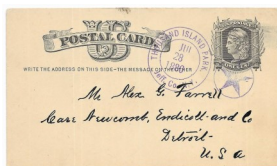 POSTAL CARD
WRITE THE ADDRESS ON THIS SIDE - THE MESSAGE ON THE OTHER
THOUSAND ISLAND PARK,
JUL
28
1880
Jeff. Co.
Mr Alex G. Farrell
Care Newcomb, Endicott and Co
Detroit -
U. S. A